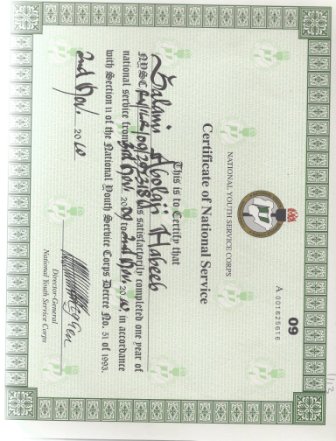 09
A 001626616
NATIONAL YOUTH SERVICE CORPS
Certificate of National Service
This is to Certify that
Salami Abolaji Habeeb
NYSC has satisfactorily completed one year of
national service from 3rd Nov. 2009 to 2nd Nov. 2010, in accordance
with Section 11 of the National Youth Service Corps Decree No. 51 of 1993.
2nd Nov. 2010
Director-General
National Youth Service Corps